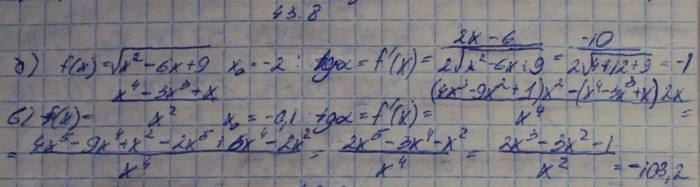 43.8
б) f(x) = √(x² - 6x + 9) x₀ = -2 : tgα = f'(x) = (2x - 6)/(2√(x² - 6x + 9)) = -10/(2√(4+12+9)) = -1
в) f(x) = (x⁴ - 3x³ + x)/x² x₀ = -0,1 tgα = f'(x) = ((4x³ - 9x² + 1)x² - (x⁴ - 3x³ + x)2x)/x⁴ =
= (4x⁵ - 9x⁴ + x² - 2x⁵ + 6x⁴ - 2x²)/x⁴ = (2x⁵ - 3x⁴ - x²)/x⁴ = (2x³ - 3x² - 1)/x² = -103,2